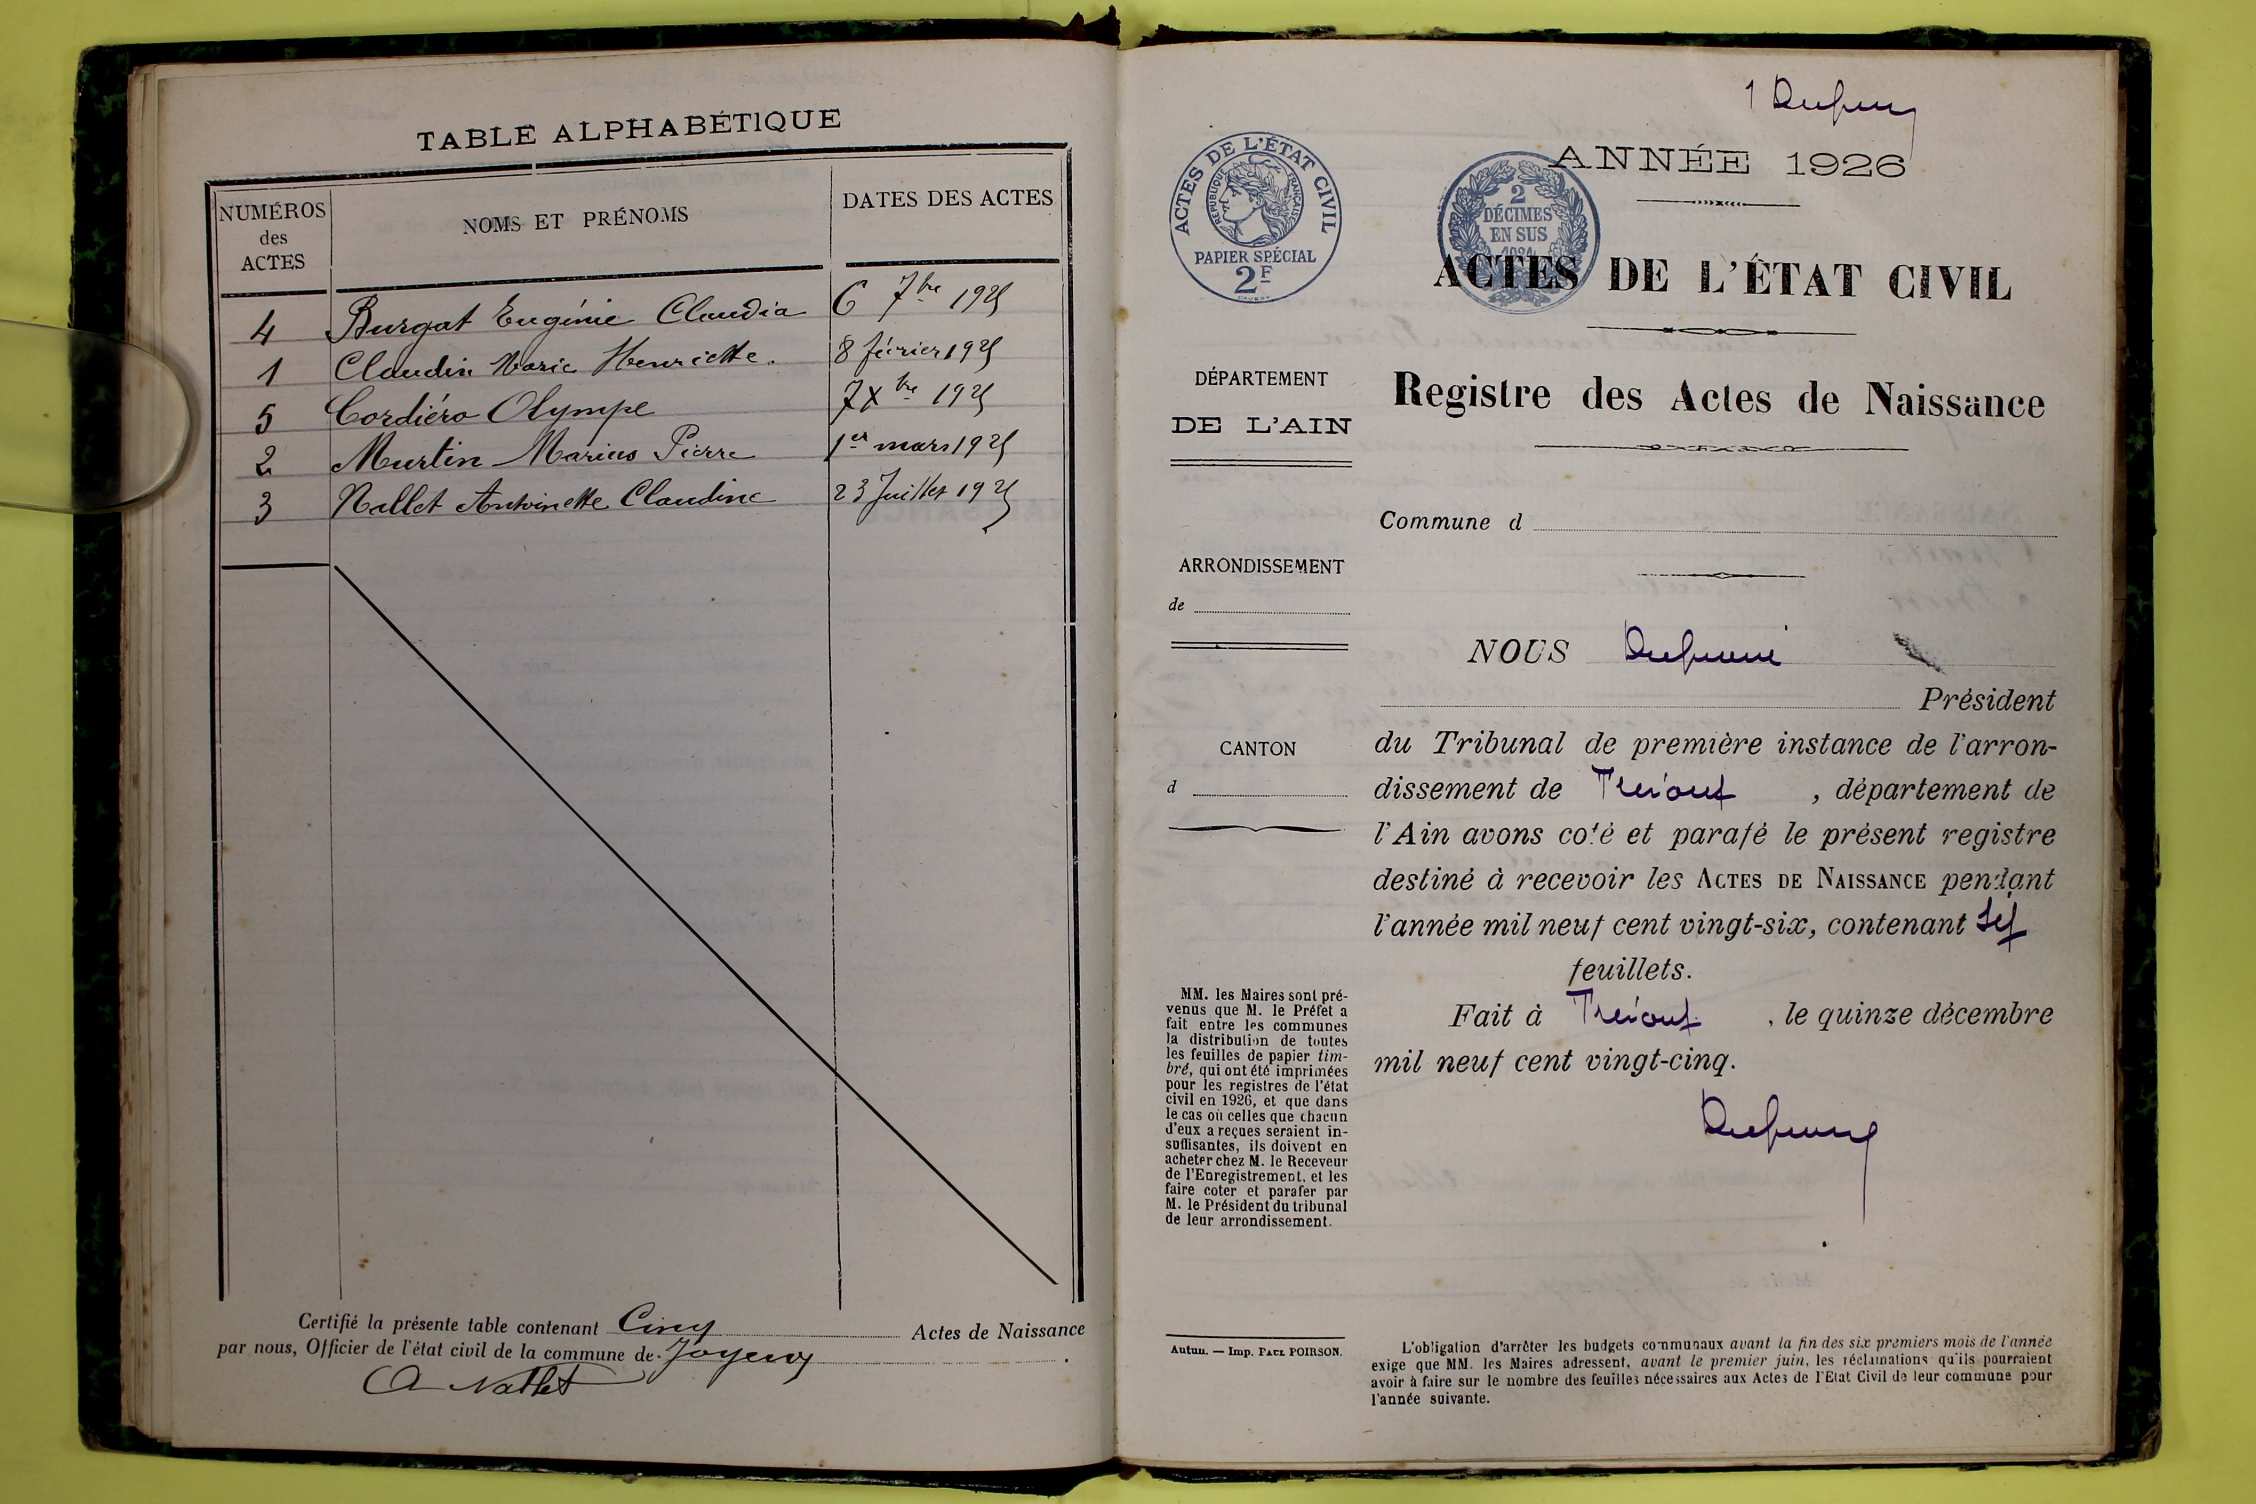 TABLE ALPHABÉTIQUE
NUMÉROS des ACTES
NOMS ET PRÉNOMS
DATES DES ACTES
4 Burgat Eugénie Claudia 6 7bre 1925
1 Claudin Marie Henriette. 8 février 1925
5 Cordiéro Olympe 7 Xbre 1925
2 Murtin Marius Pierre 1er mars 1925
3 Nallet Antoinette Claudine 23 Juillet 1925
Certifié la présente table contenant Cinq Actes de Naissance
par nous, Officier de l'état civil de la commune de Joyeux.
A Nallet
1
ANNÉE 1926
ACTES DE L'ÉTAT CIVIL
RÉPUBLIQUE FRANÇAISE
PAPIER SPÉCIAL
2F
2
DÉCIMES
EN SUS
ACTES DE L'ÉTAT CIVIL
Registre des Actes de Naissance
DÉPARTEMENT
DE L'AIN
Commune d
ARRONDISSEMENT
de
CANTON
d
NOUS
Président
du Tribunal de première instance de l'arron-
dissement de Trévoux, département de
l'Ain avons coté et parafé le présent registre
destiné à recevoir les ACTES DE NAISSANCE pendant
l'année mil neuf cent vingt-six, contenant
feuillets.
Fait à Trévoux, le quinze décembre
mil neuf cent vingt-cinq.
MM. les Maires sont pré-
venus que M. le Préfet a
fait entre les communes
la distribution de toutes
les feuilles de papier tim-
bré, qui ont été imprimées
pour les registres de l'état
civil en 1926, et que dans
le cas où celles que chacun
d'eux a reçues seraient in-
suffisantes, ils doivent en
acheter chez M. le Receveur
de l'Enregistrement, et les
faire coter et parafer par
M. le Président du tribunal
de leur arrondissement.
Autun. — Imp. PAUL POIRSON.
L'obligation d'arrêter les budgets communaux avant la fin des six premiers mois de l'année
exige que MM. les Maires adressent, avant le premier juin, les réclamations qu'ils pourraient
avoir à faire sur le nombre des feuilles nécessaires aux Actes de l'Etat Civil de leur commune pour
l'année suivante.